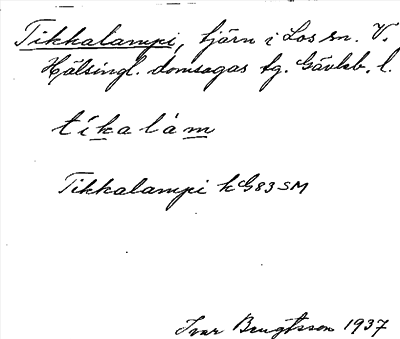 Tikkalampi, tjärn i Los sn. V.
Hälsingl. domsagas tg. Gävleb. l.
tíkalàm
Tikkalampi k G83 SM
Ivar Bengtsson 1937